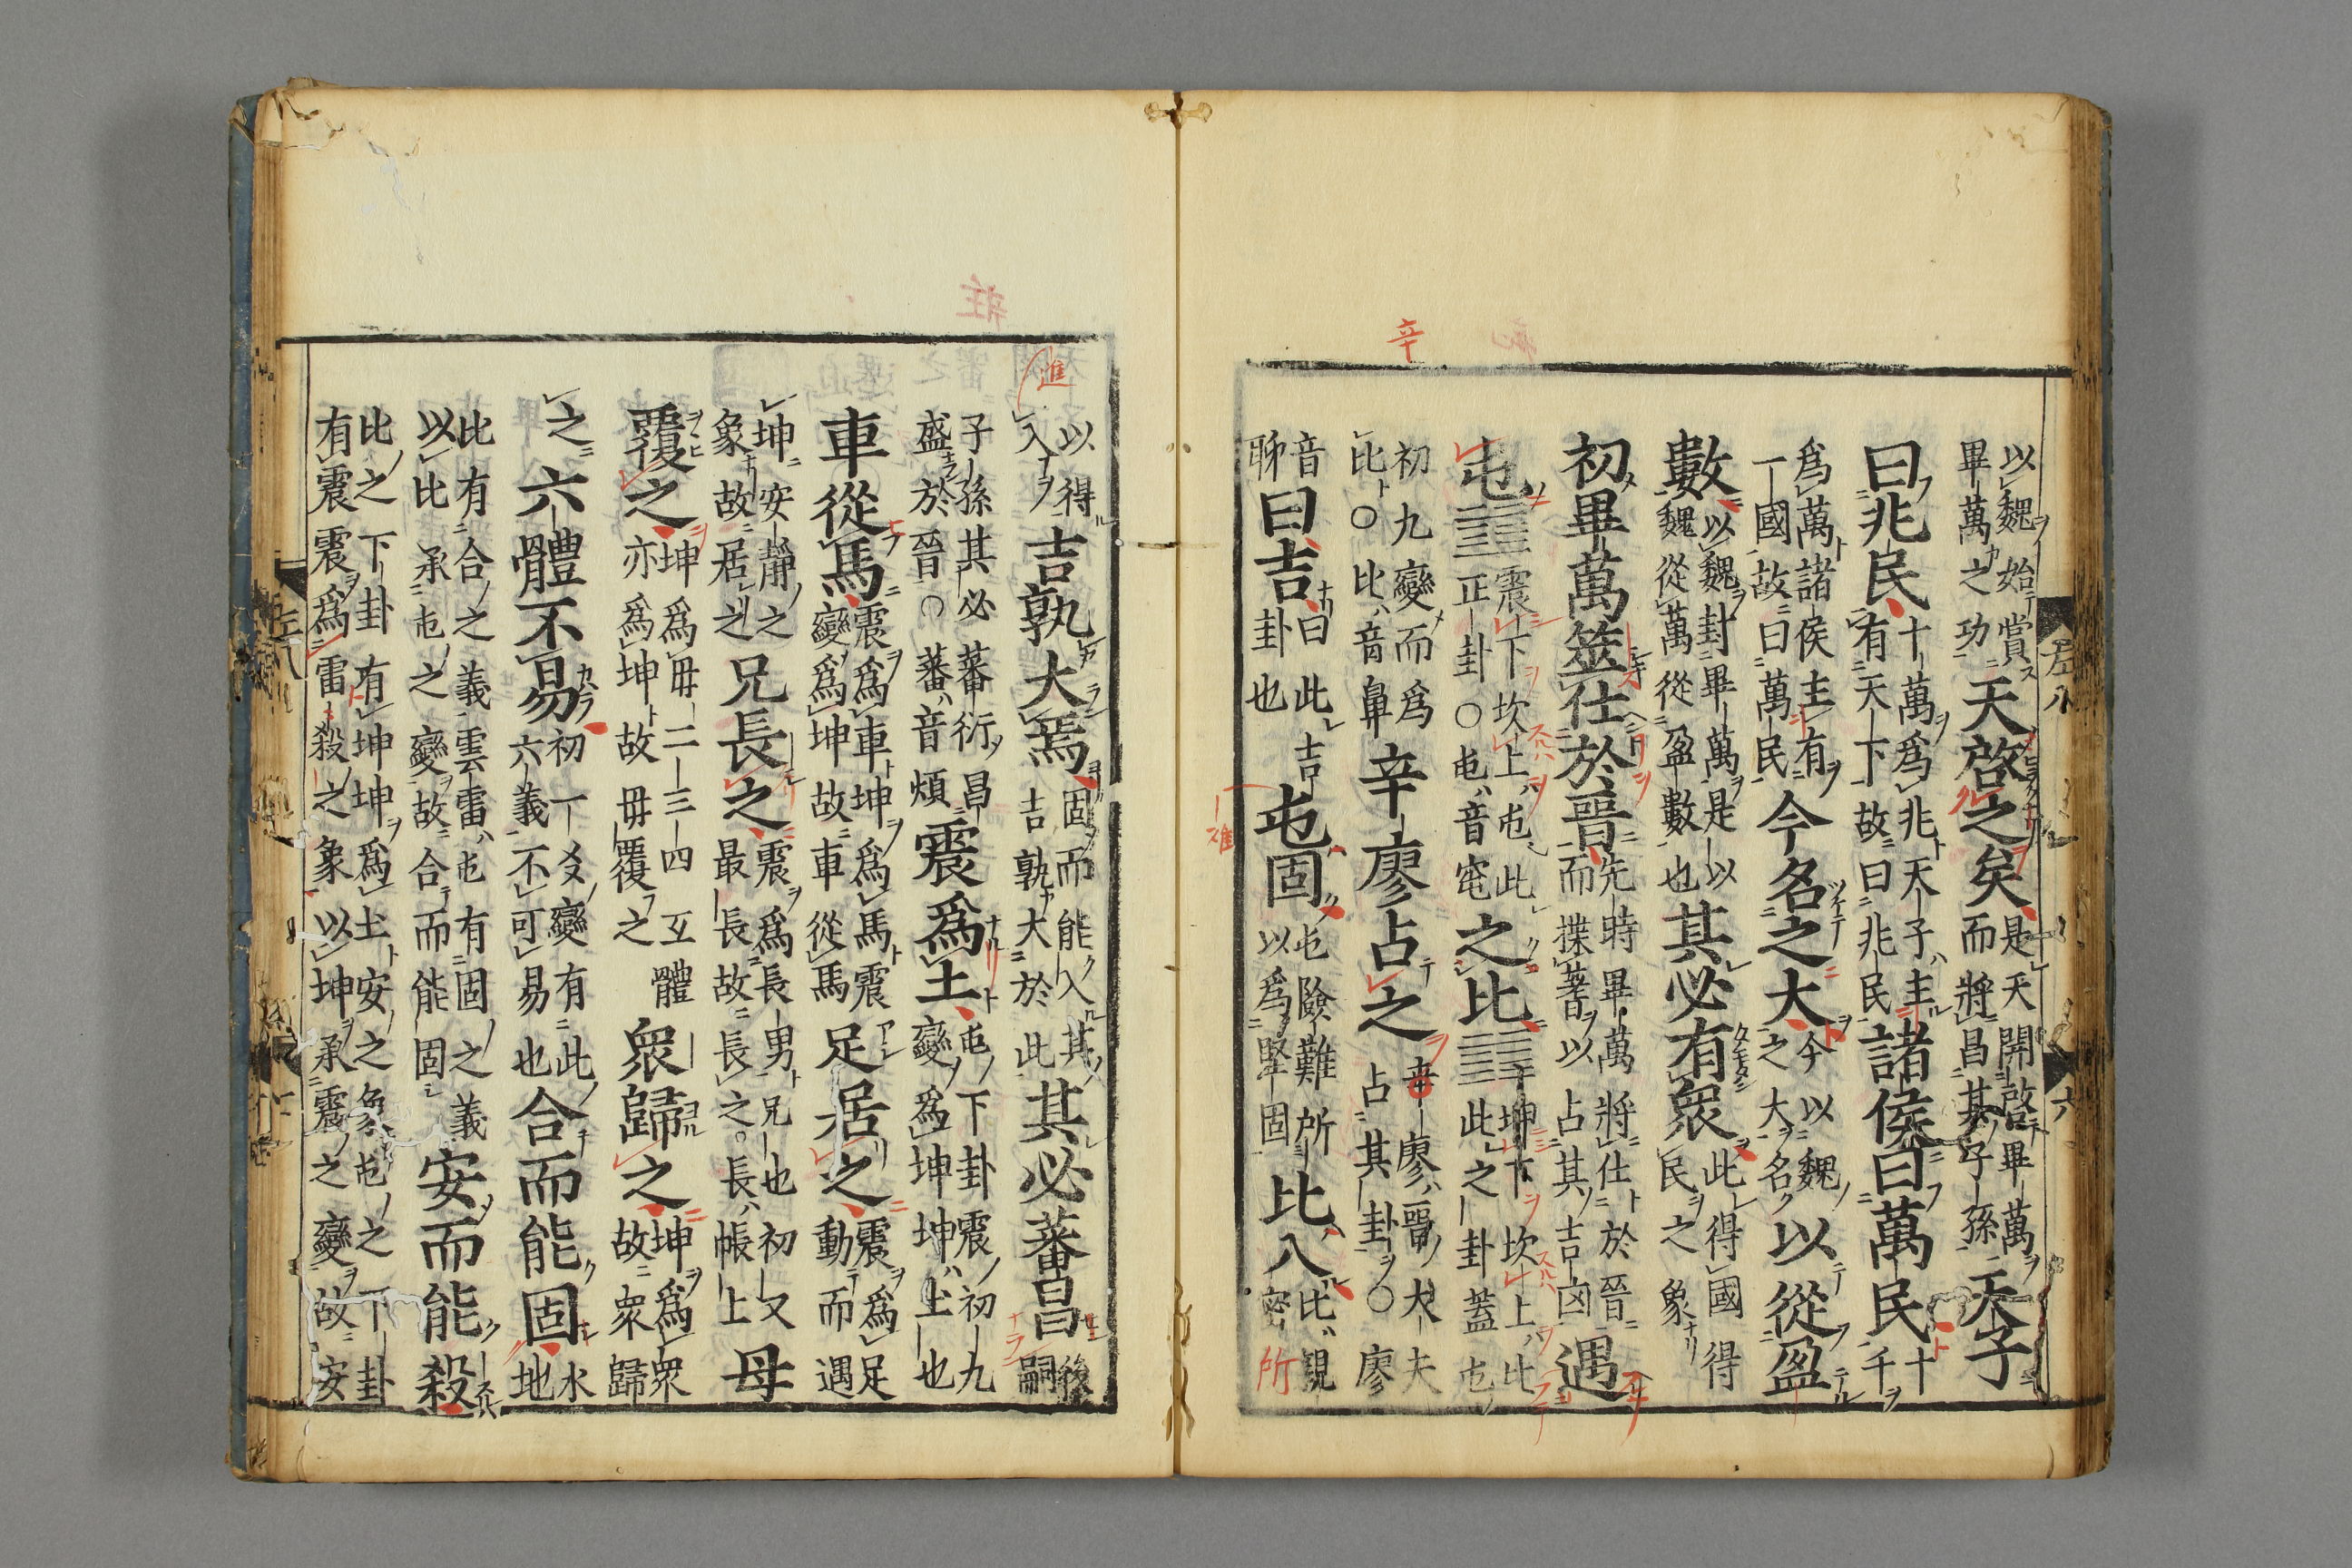 以魏始賞畢萬之功天啓之矣是天開啓畢萬而將昌其子孫天子
曰兆民十萬爲兆天子主有天下故曰兆民諸侯曰萬民十千
爲萬諸侯主有一國故曰萬民今名之大今以魏之大名以從盈
數以魏封畢萬是以魏從萬從盈數也其必有衆此得國得民之象
初畢萬筮仕於晉先時畢萬將仕於晉而揲蓍以占其吉凶遇
屯䷂震下坎上屯此正卦○屯音窀之比䷇坤下坎上此此之卦蓋屯
初九變而爲比○比音鼻辛廖占之辛廖晉大夫占其卦○廖
音聊曰吉曰此吉卦也屯固屯險難所以爲堅固比入比親密所
以得入吉孰大焉固而能入其吉孰大於此其必蕃昌後嗣
子孫其必蕃衍昌盛於晉○蕃音煩震爲土屯下卦震初九變爲坤坤土也
車從馬震爲車坤爲馬震變爲坤故車從馬足居之震爲足動而遇
坤安靜之象故居之兄長之震爲長男兄也初又最長故長之○長帳上母
覆之坤爲母二三四互體亦爲坤故母覆之衆歸之坤爲衆故衆歸
之六體不易初一爻變有此六義不可易也合而能固水地
比有合之義雲雷屯有固之義以比承屯之變故合而能固安而能殺
比之下卦有坤坤爲土安之象屯之下卦有震震爲雷殺之象以坤承震之變故安
辛
所
進
左八
六